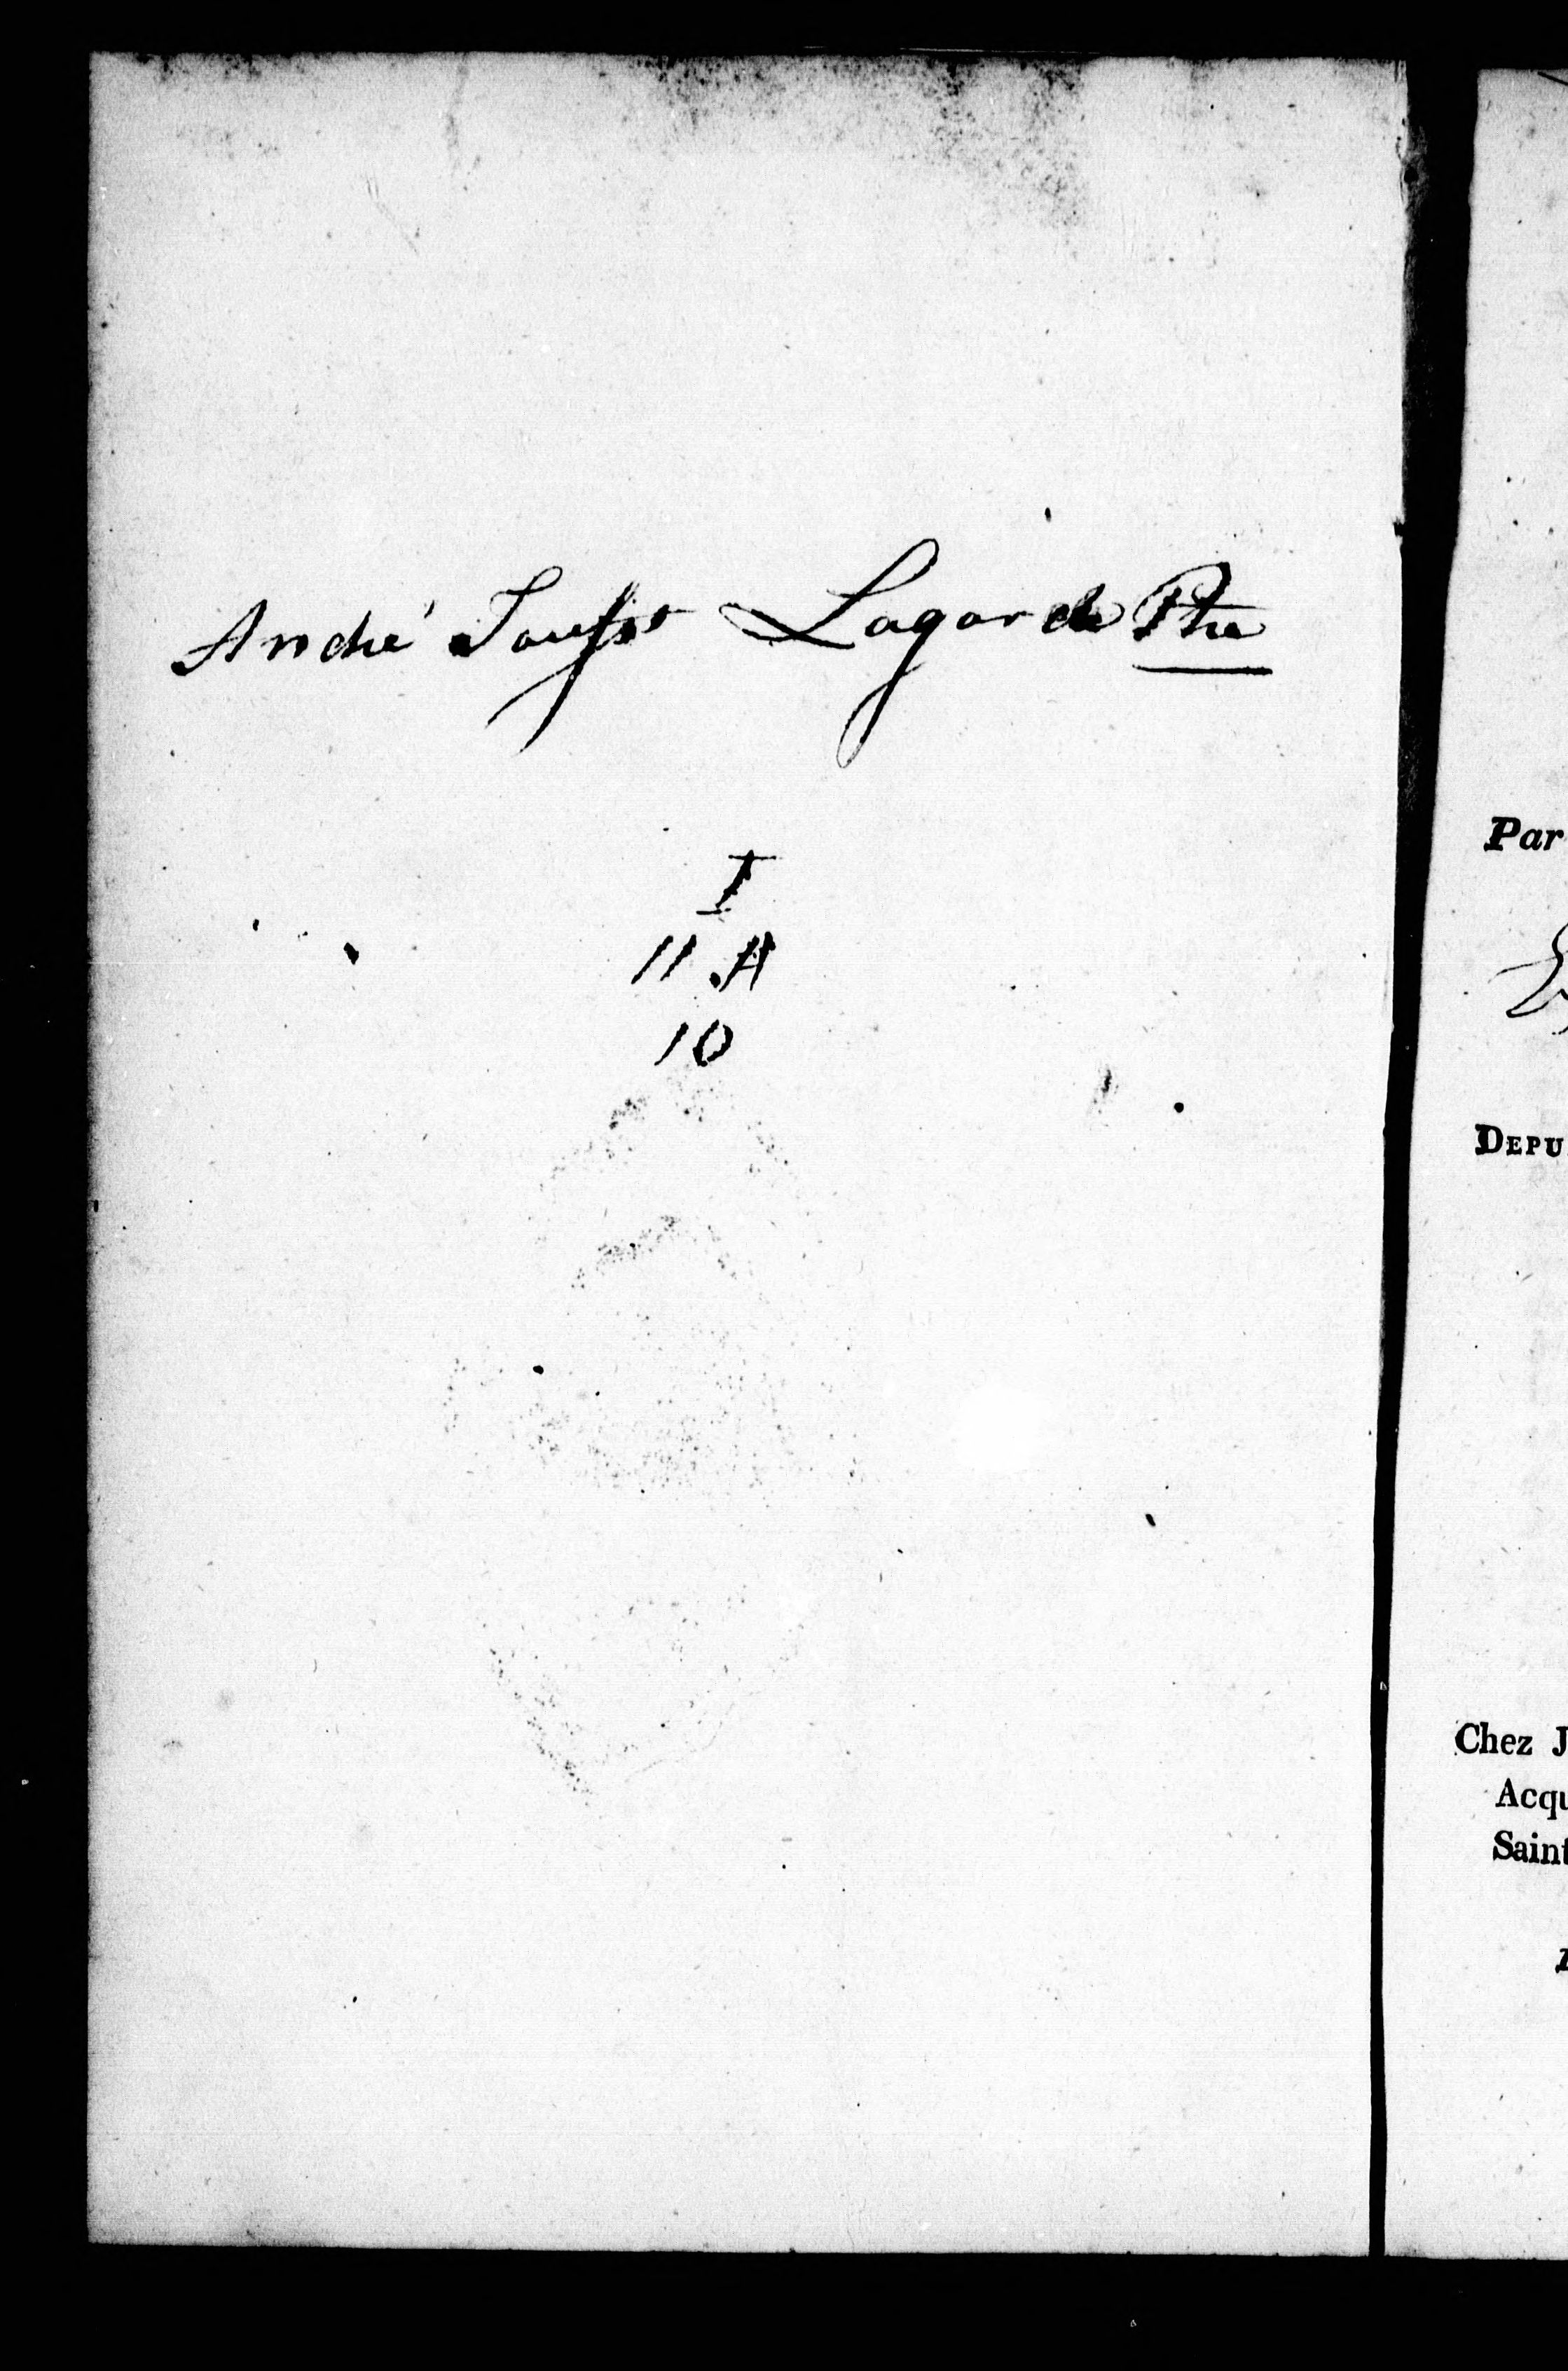 André Lagarde Ptre
I
11 A
10
Par
DEPU
Chez J
Acqu
Saint